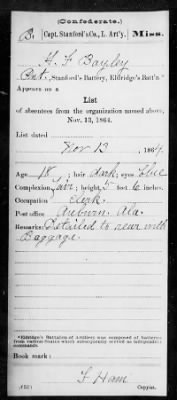 (Confederate.)
B. Capt. Stanford's Co., L. Art'y. Miss.
H. F. Bayley
Pvt., Stanford's Battery, Eldridge's Batt'n.*
Appears on a
List
of absentees from the organization named above,
Nov. 13, 1864.
List dated
Nov 13, 1864.
Age 18; hair dark; eyes blue
Complexion fair; height 5 feet 6 inches.
Occupation Clerk
Post office Auburn, Ala.
Remarks: Detailed to rear with
Baggage.
*Eldridge's Battalion of Artillery was composed of batteries
from various States which subsequently served as independent
commands.
Book mark:
F Ham
Copyist.